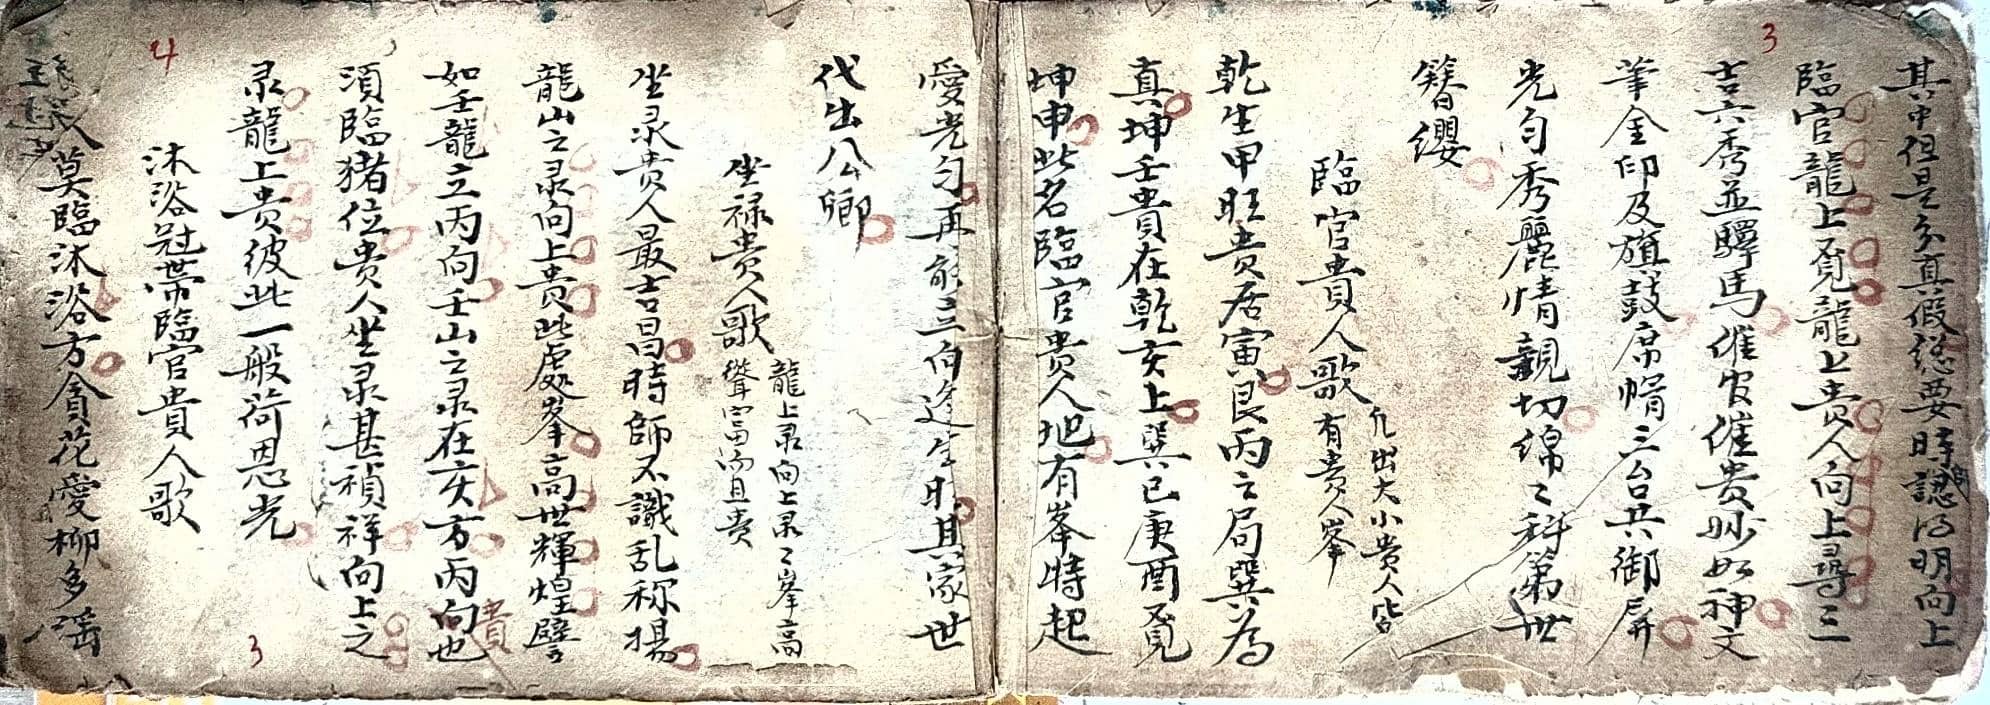 3
其中但是分真假總要時師認得明向上
臨官龍上覓龍上貴人向上尋三
吉六秀並驛馬催官催貴妙如神文
筆金印及旗鼓席帽三台共御屏
光勻秀麗情親切綿々科第世
簪纓
臨官貴人歌
凡出大小貴人皆
有貴人峯
乾生甲旺貴居寅艮丙之局巽為
真坤壬貴在乾亥上巽巳庚酉覓
坤申此名臨官貴人地有峯特起
愛光勻再能三向逢生旺其家世
代出公卿
坐禄貴人歌
龍上录向上录々峯高
聳富而且貴
坐录貴人最吉昌時師不識乱称揚
龍山之录向上貴此處峯高世輝煌譬
如壬龍立丙向壬山之录在亥方丙向也
貴
須臨猪位貴人坐录甚禎祥向上之
录龍上貴彼此一般荷恩光
沐浴冠带臨官貴人歌
莫臨沐浴方貪花愛柳多瑶
4
3